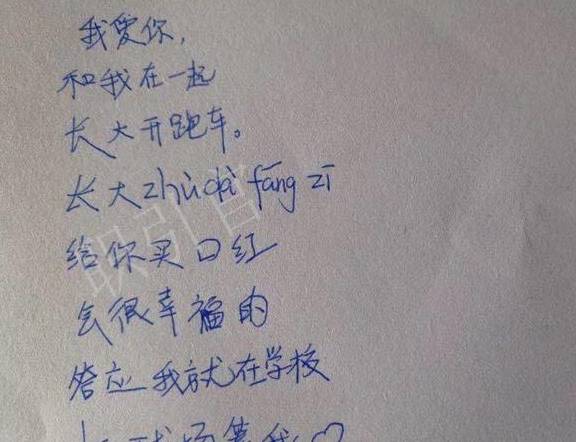 我爱你,
和我在一起
长大开跑车。
长大zhù dà fáng zī
给你买口红
会很幸福的
答应我就在学校
球场等我♡
职引者